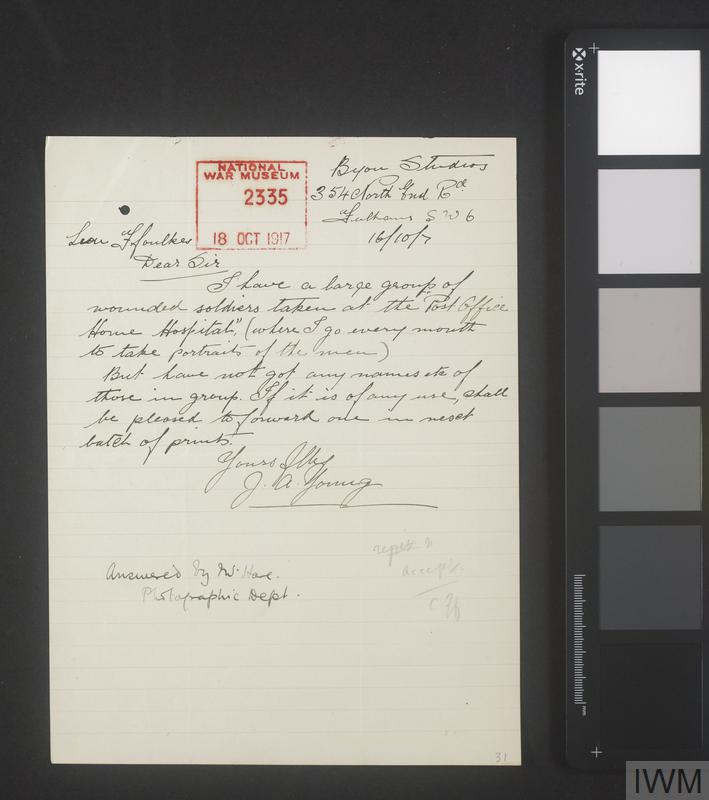 NATIONAL
WAR MUSEUM
2335
18 OCT 1917
Bijou Studios
354 North End Rd
Fulham S W 6
16/10/7
Leon Ffoulkes
Dear Sir
I have a large group of
wounded soldiers taken at the "Post Office
Home Hospital", (where I go every month
to take portraits of the men)
But have not got any names etc of
those in group. If it is of any use, shall
be pleased to forward one in next
batch of prints.
Yours Ffly
J. A. Young
Answered by Mr Hare.
Photographic Dept.
accept.
C ff
31
x-rite
mm
IWM